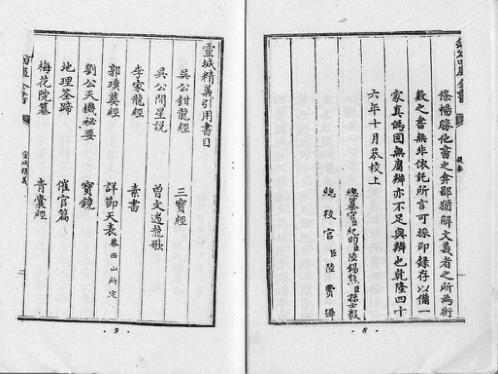 條暢勝他書之弇鄙猶解文義者之所為術
數之書無非依託所言可採即錄存以備一
家真偽固無庸辨亦不足與辨也乾隆四十
六年十月恭校上
總纂官臣紀昀臣陸錫熊臣孫士毅
總校官臣陸費墀
提要
- 8 -
靈城精義引用書目
吳公鉗龍經 三寶經
吳公問星說 曾文遄龍歌
李家龍經 素書
郭璞葬經 詳節天表 蔡西山所定
劉公天機秘要 寶鏡
地理筌蹄 催官篇
梅花院纂 青囊經
靈城精義
- 9 -